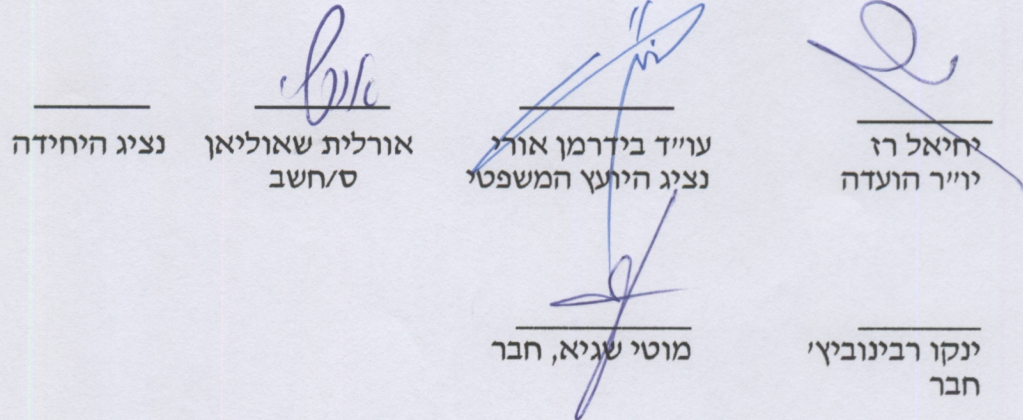 יחיאל רז
יו״ר הועדה
עו״ד בידרמן אורי
נציג היועץ המשפטי
אורלית שאוליאן
ס/חשב
נציג היחידה
ינקו רבינוביץ׳
חבר
מוטי שגיא, חבר